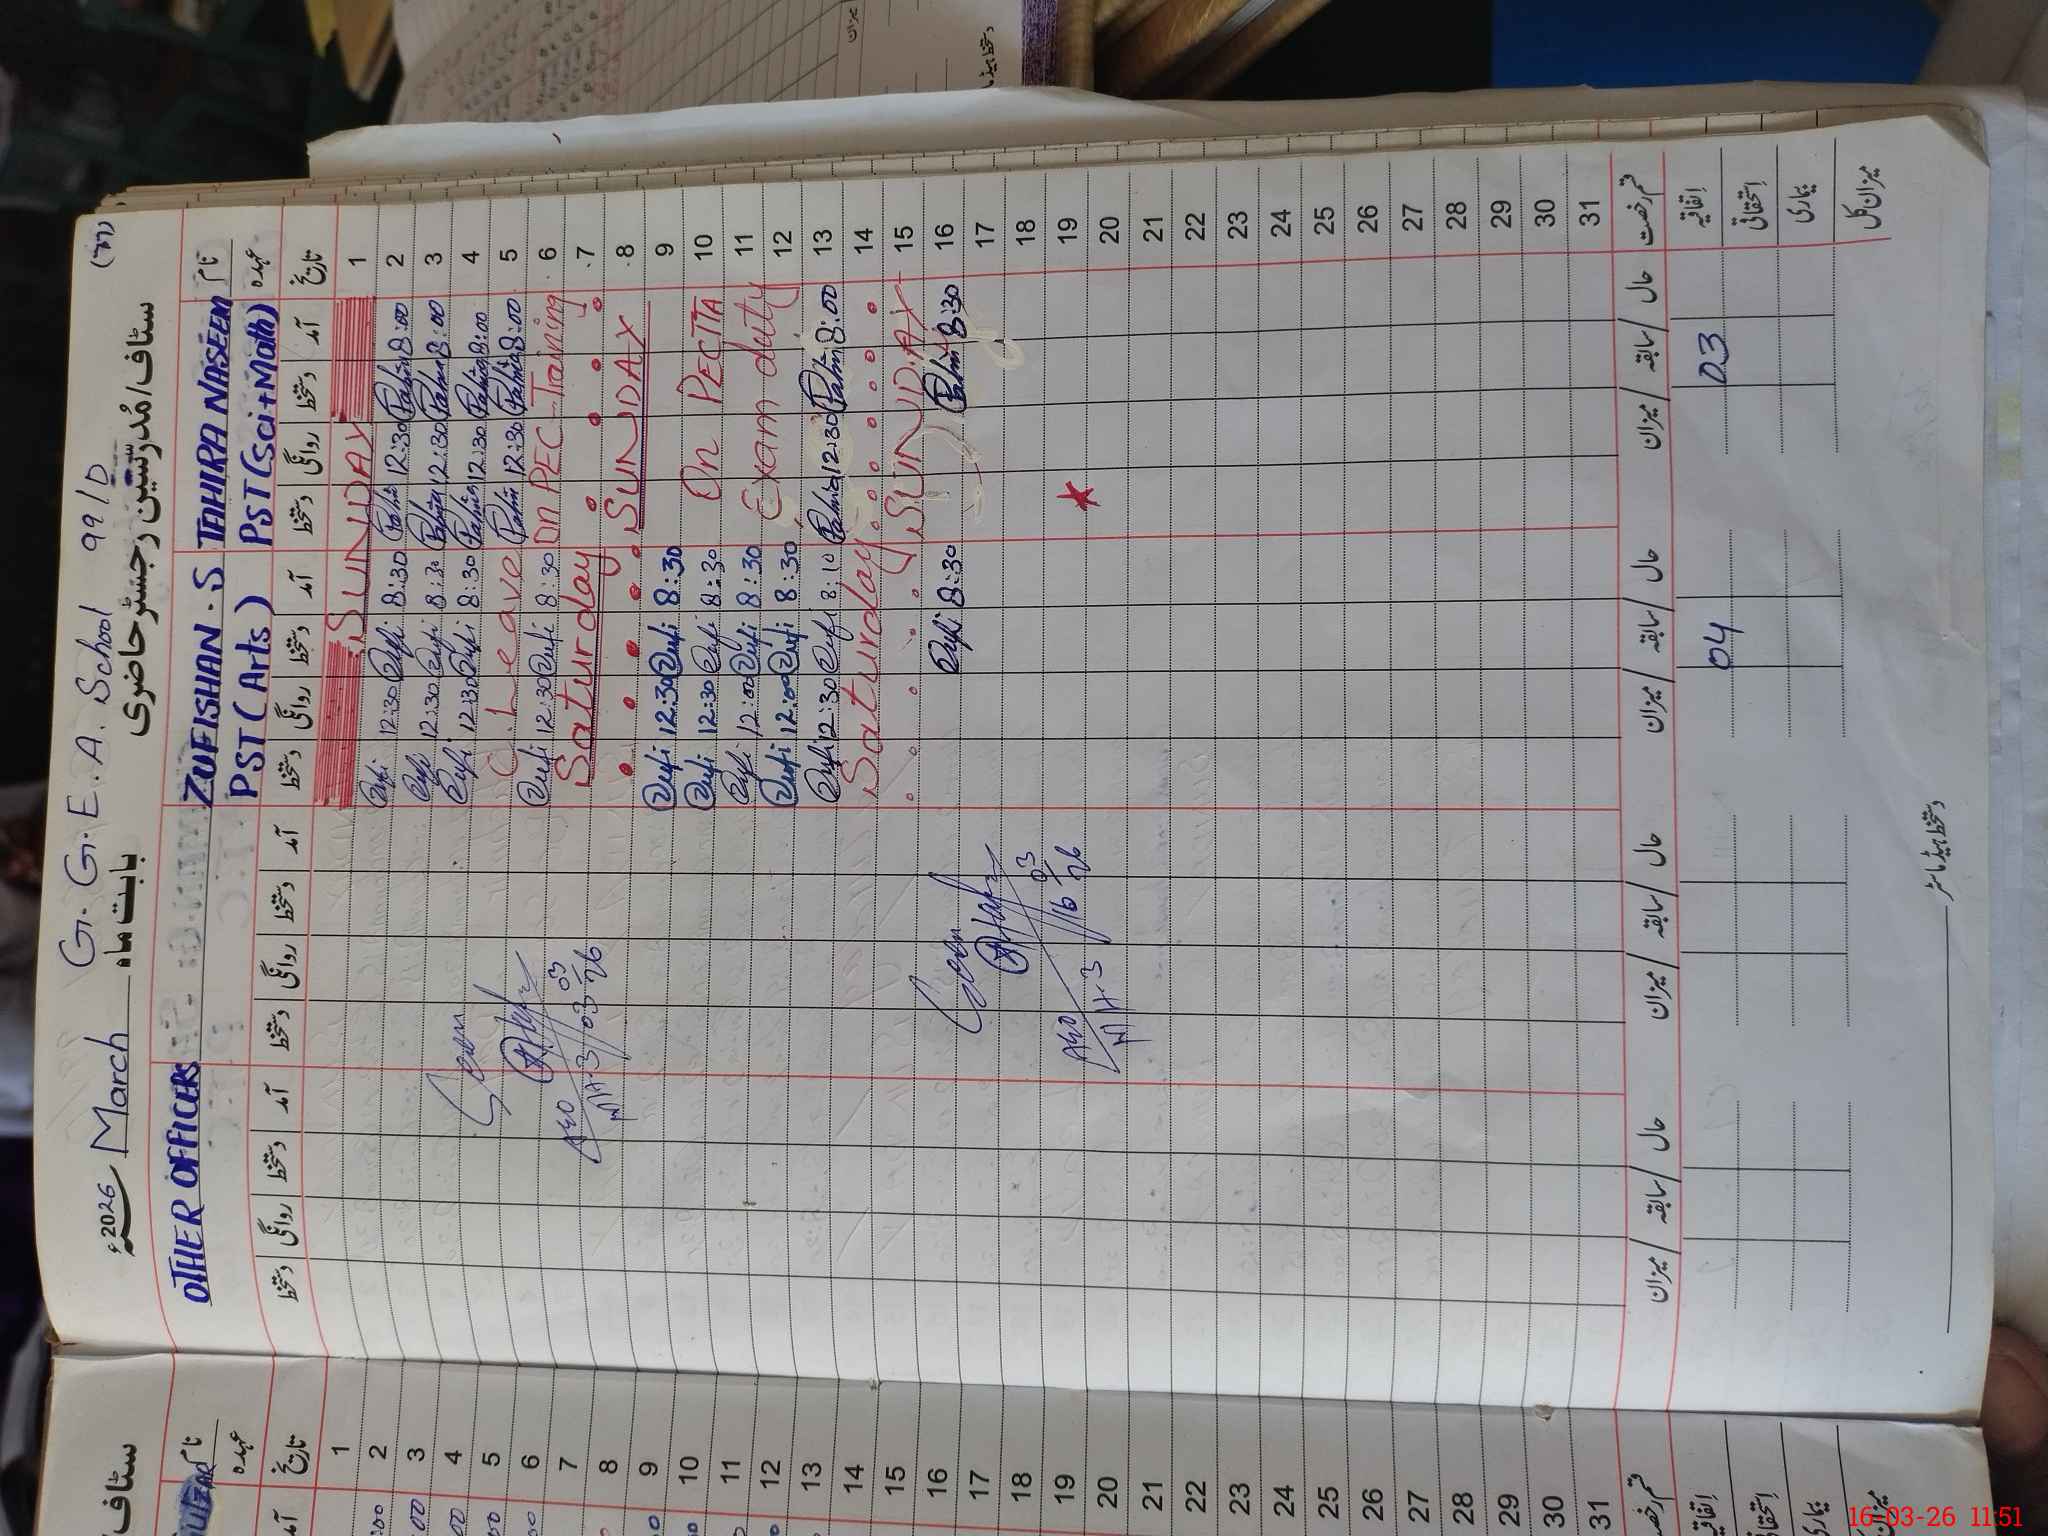 (۳۲)
G. G. E. A. School 99/D
سٹاف/مُدرّسین رجسٹر حاضری
بابت ماہ March 2026ء
نام TAHIRA NASEEM ZUFISHAN . S OTHER OFFICERS
عہدہ PST (Sci+Math) PST (Arts)
تاریخ آمد دستخط روانگی دستخط آمد دستخط روانگی دستخط آمد دستخط روانگی دستخط آمد دستخط روانگی دستخط
1 SUNDAY
2 8:00 12:30 8:30 Zufi 12:30 Zufi
3 8:00 12:30 8:30 Zufi 12:30 Zufi
4 8:00 12:30 8:30 Zufi 12:30 Zufi
5 8:00 12:30 C. Leave
6 On PEC Training 8:30 Zufi 12:30 Zufi
7 Saturday
8 SUNDAY
9 8:30 Zufi 12:30 Zufi
10 On PECTTA 8:30 Zufi 12:30 Zufi
11 Exam duty 8:30 Zufi 12:00 Zufi
12 8:30 Zufi 12:00 Zufi
13 8:00 12:30 8:10 Zufi 12:30 Zufi
14 Saturday
15 SUNDAY
16 8:30 8:30 Zufi
17
18
19
20
21
22
23
24
25
26
27
28
29
30
31
Seen
AEO
03-03-26
Seen
AEO
16 03 26
قسم رخصت حال سابقہ میزان حال سابقہ میزان حال سابقہ میزان حال سابقہ میزان
اتفاقیہ 03 04
استحقاقی
بیماری
میزان کل
دستخط ہیڈ ماسٹر
سٹاف
نام
عہدہ
تاریخ آمد
1
2
3
4
5
6
7
8
9
10
11
12
13
14
15
16
17
18
19
20
21
22
23
24
25
26
27
28
29
30
31
اتفاقیہ
استحقاقی
بیماری
میزان
دستخط ہیڈ
16-03-26 11:51